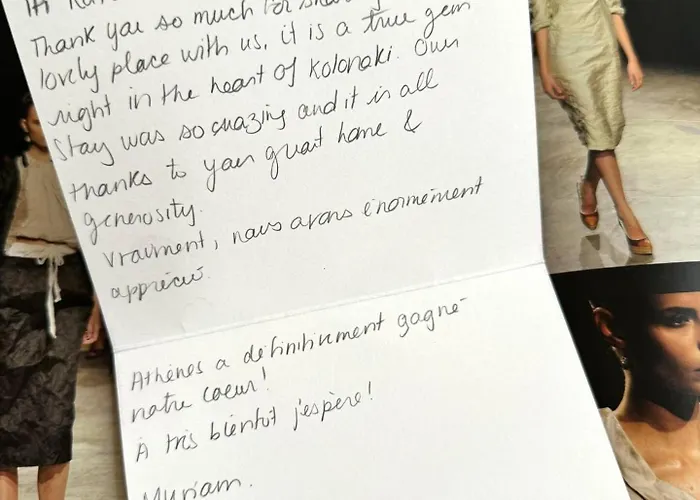 Thank you so much for
lovely place with us, it is a true gem
right in the heart of Kolonaki. Our
Stay was so amazing and it is all
thanks to your great home &
generosity.
Vraiment, nous avons énormément
apprécié.
Athènes a définitivement gagné
notre coeur!
À très bientôt j'espère!
Myriam.